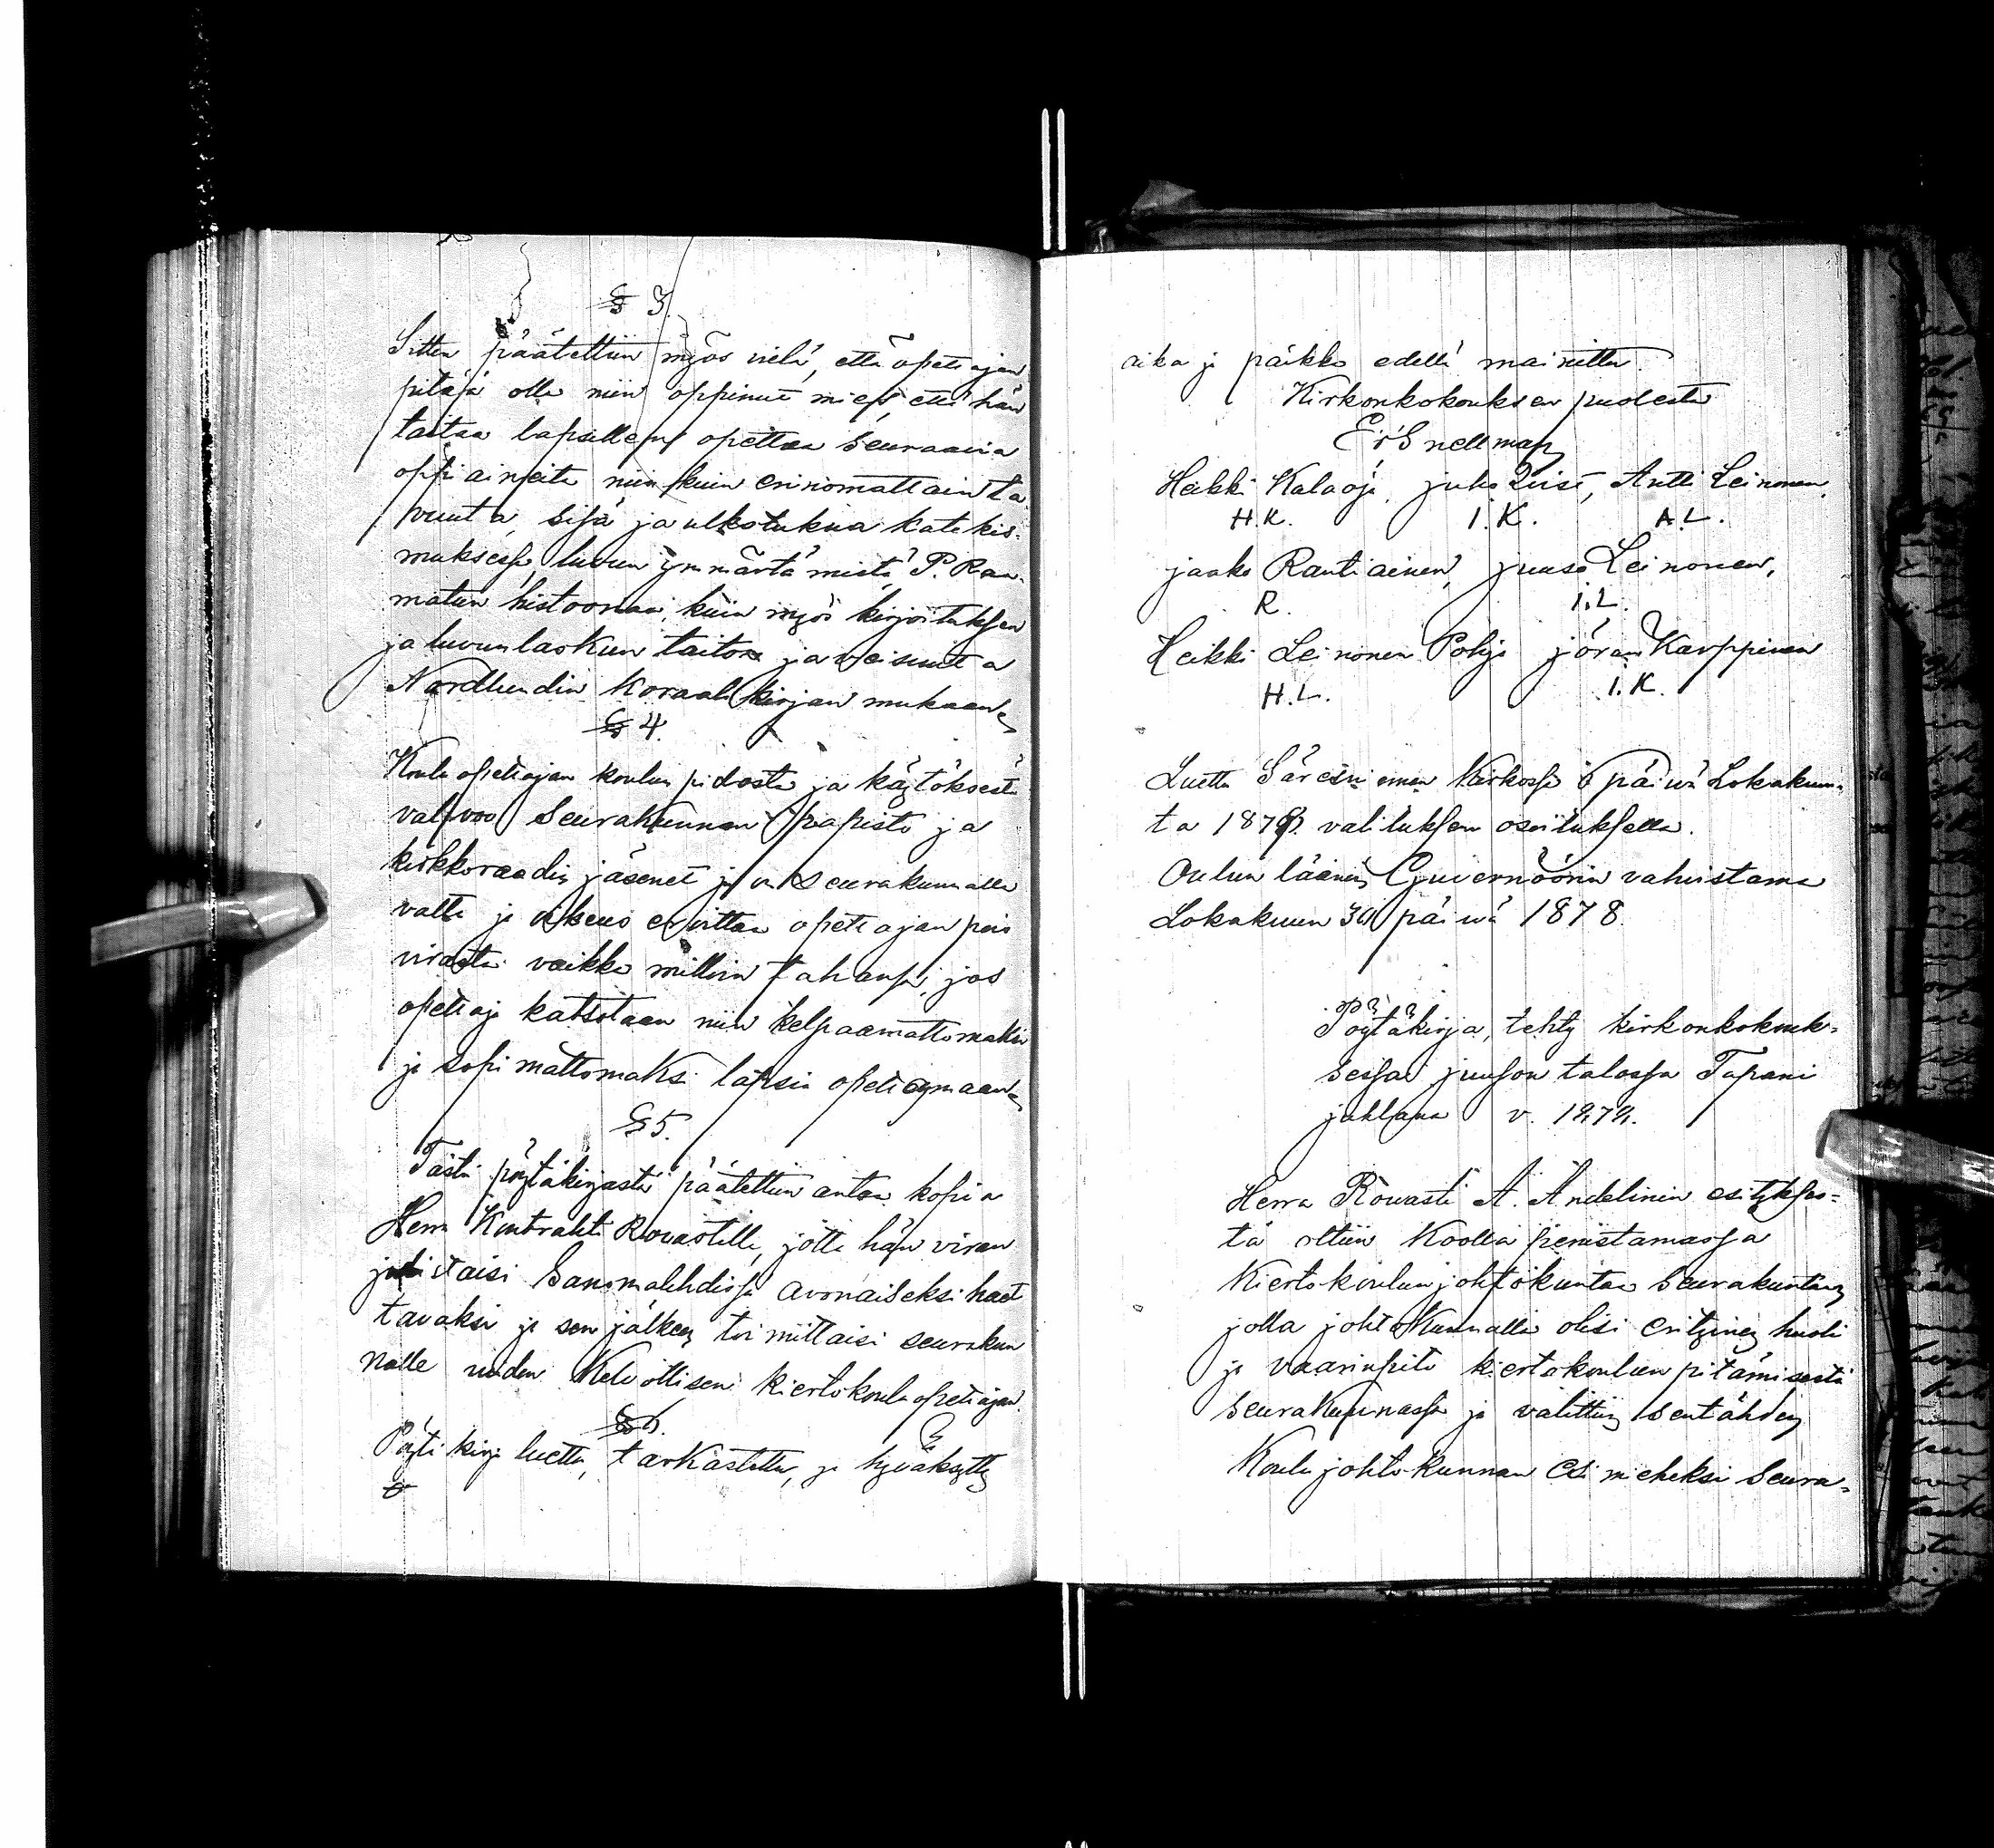 § 3.
Sitten päätettiin myös vielä, että opettajan
pitäjä olla niin oppinut mies, että hän
taitaa lapsille opettaa seuraavia
oppiaineita niin kuin erinomattain ta
vuuta, sisä ja ulkolukua katekis-
muksessa, luvun ymmärtämistä P. Raa-
matun histooriaa, kuin myös kirjoituksen
ja luvunlaskun taitoa ja veisuuta
Nordlundin Koraalikirjan mukaan.
§ 4.
Koulu opettajan koulun pidosta ja käytöksestä
valvoo Seurakunnan papisto ja
kirkkoraadin jäsenet ja on seurakunnalla
valta ja oikeus eroittaa opettajan pois
virasta vaikka milloin tahansa, jos
opettaja katsotaan niin kelpaamattomaksi
ja sopimattomaksi lapsia opettamaan.
§ 5.
Tästä pöytäkirjasta päätettiin antaa kopia
Herra Kontrahti Rovastille, jotta hän viran
julistaisi Sanomalehdissä avonaiseksi haet
tavaksi ja sen jälkeen toimittaisi seurakun
nalle uuden Kelvollisen kiertokoulu opettajan.
§ 6.
Pöytäkirja luettu, tarkastettu, ja hyväksytty
aika ja paikka edellä mainittu.
Kirkonkokouksen puolesta
Er. Snellman
Heikki Kalaoja, juho Kiisi, Antti Leinonen,
H.K. I.K. A.L.
jaako Rautiainen, juuso Leinonen,
R. I.L.
Heikki Leinonen Pohja jöran Karppinen
H.L. I.K.
Luettu Säresniemen Kirkossa 6 päivä Lokakuu-
ta 1878. valituksen osoituksella.
Oulun läänin Guvernöörin vahvistama
Lokakuun 30 päivä 1878.
Pöytäkirja, tehty kirkonkokouk-
sessa juuson talossa Tapani
juhlana v. 1878.
Herra Rovasti A. Andelinin esitykses-
tä oltiin Koolla perustamassa
Kiertokoulun johtokuntaa seurakuntaan
jolla johtoKunnalla olisi erityinen huoli
ja vaarinpito kiertokoulun pitämisestä
SeuraKunnassa ja valittiin sentähden
Koulu johtokunnan esimieheksi Seura-